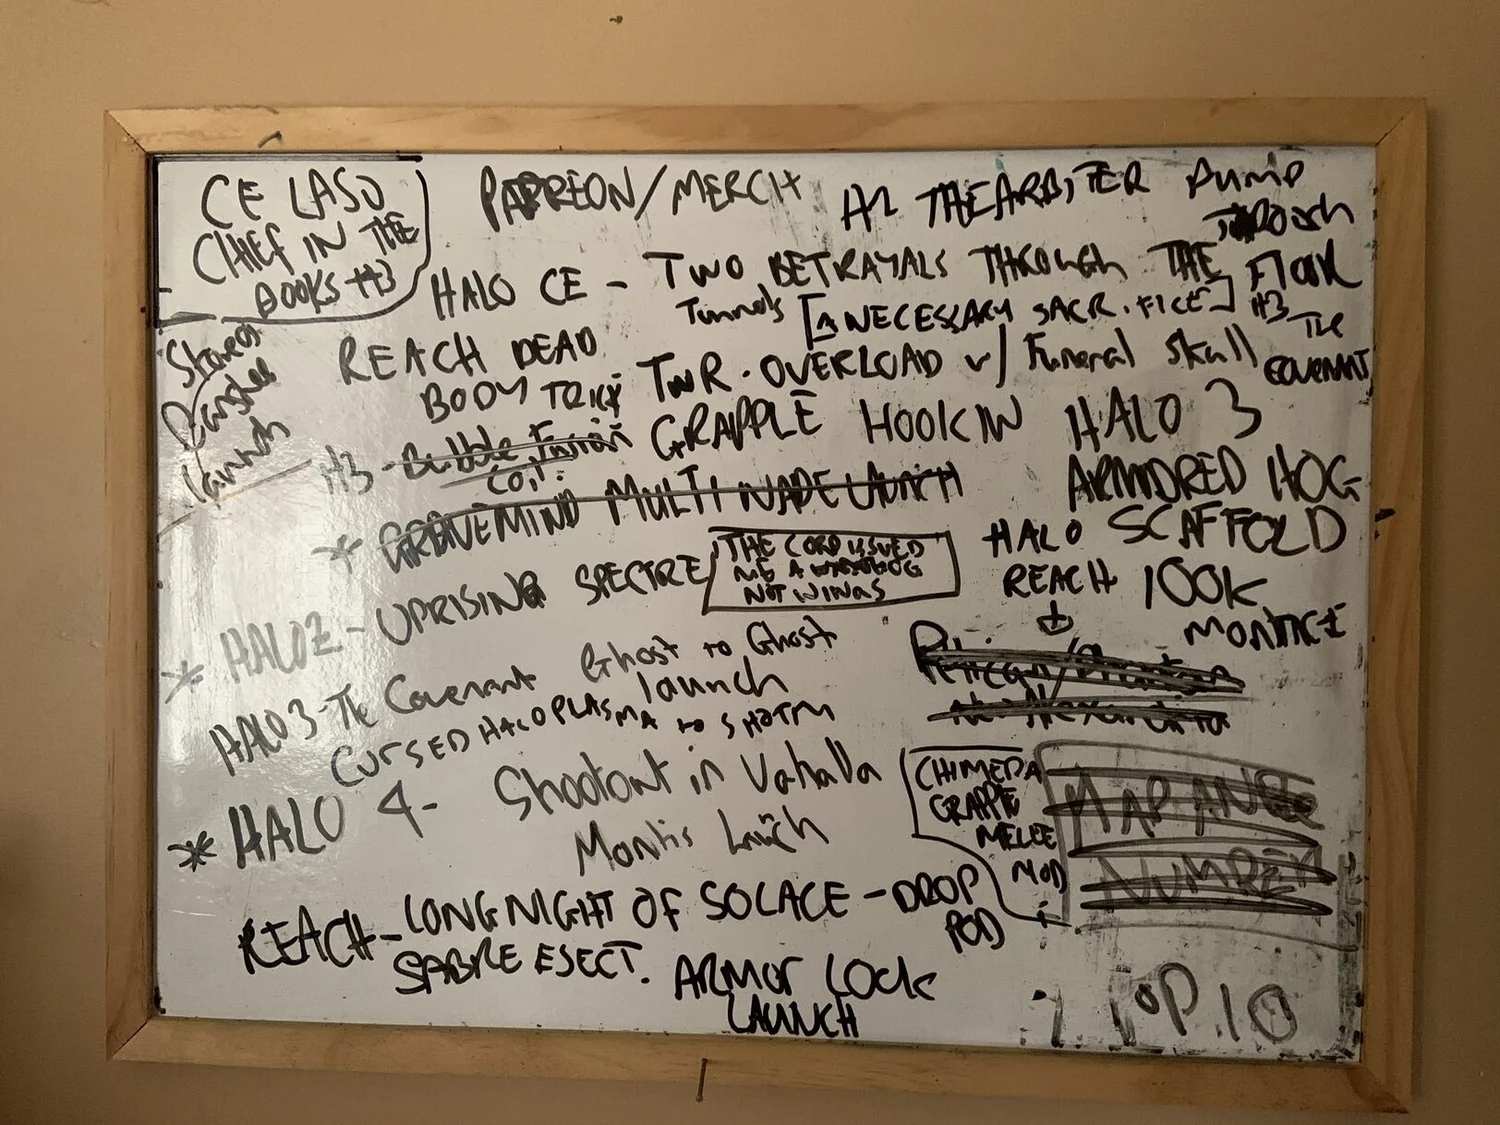 CE LASO
CHIEF IN THE
BOOKS #3
PATREON/MERCH
THE ARBITER PUMP
THROUGH
FLOOR
HALO CE - TWO BETRAYALS THROUGH THE
Tunnels [A NECESSARY SACRIFICE]
H3 The
COVENANT
Banshee
launch
REACH DEAD
BODY TRICK
OVERLOAD w/ Funeral Skull
H3 - Bubble Fusion
Coil
GRAPPLE HOOK IN HALO 3
* GRAVEMIND MULTI NADE LAUNCH
ARMORED HOG
HALO SCAFFOLD
REACH 100K
MONTAGE
* HALO 2 - UPRISING SPECTRE
THE CORP ISSUED
ME A WARTHOG
NOT WINGS
HALO 3 - The Covenant Ghost to Ghost
launch
CURSED HALO PLASMA to SHOTTY
* HALO 4 - Shootout in Valhalla
Mantis Launch
CHIMERA
GRAPPLE
MELEE
MOD
MAP AND
NUMBER
REACH - LONG NIGHT OF SOLACE - DROP
POD
SABRE EJECT. ARMOR LOCK
LAUNCH
TOP 10